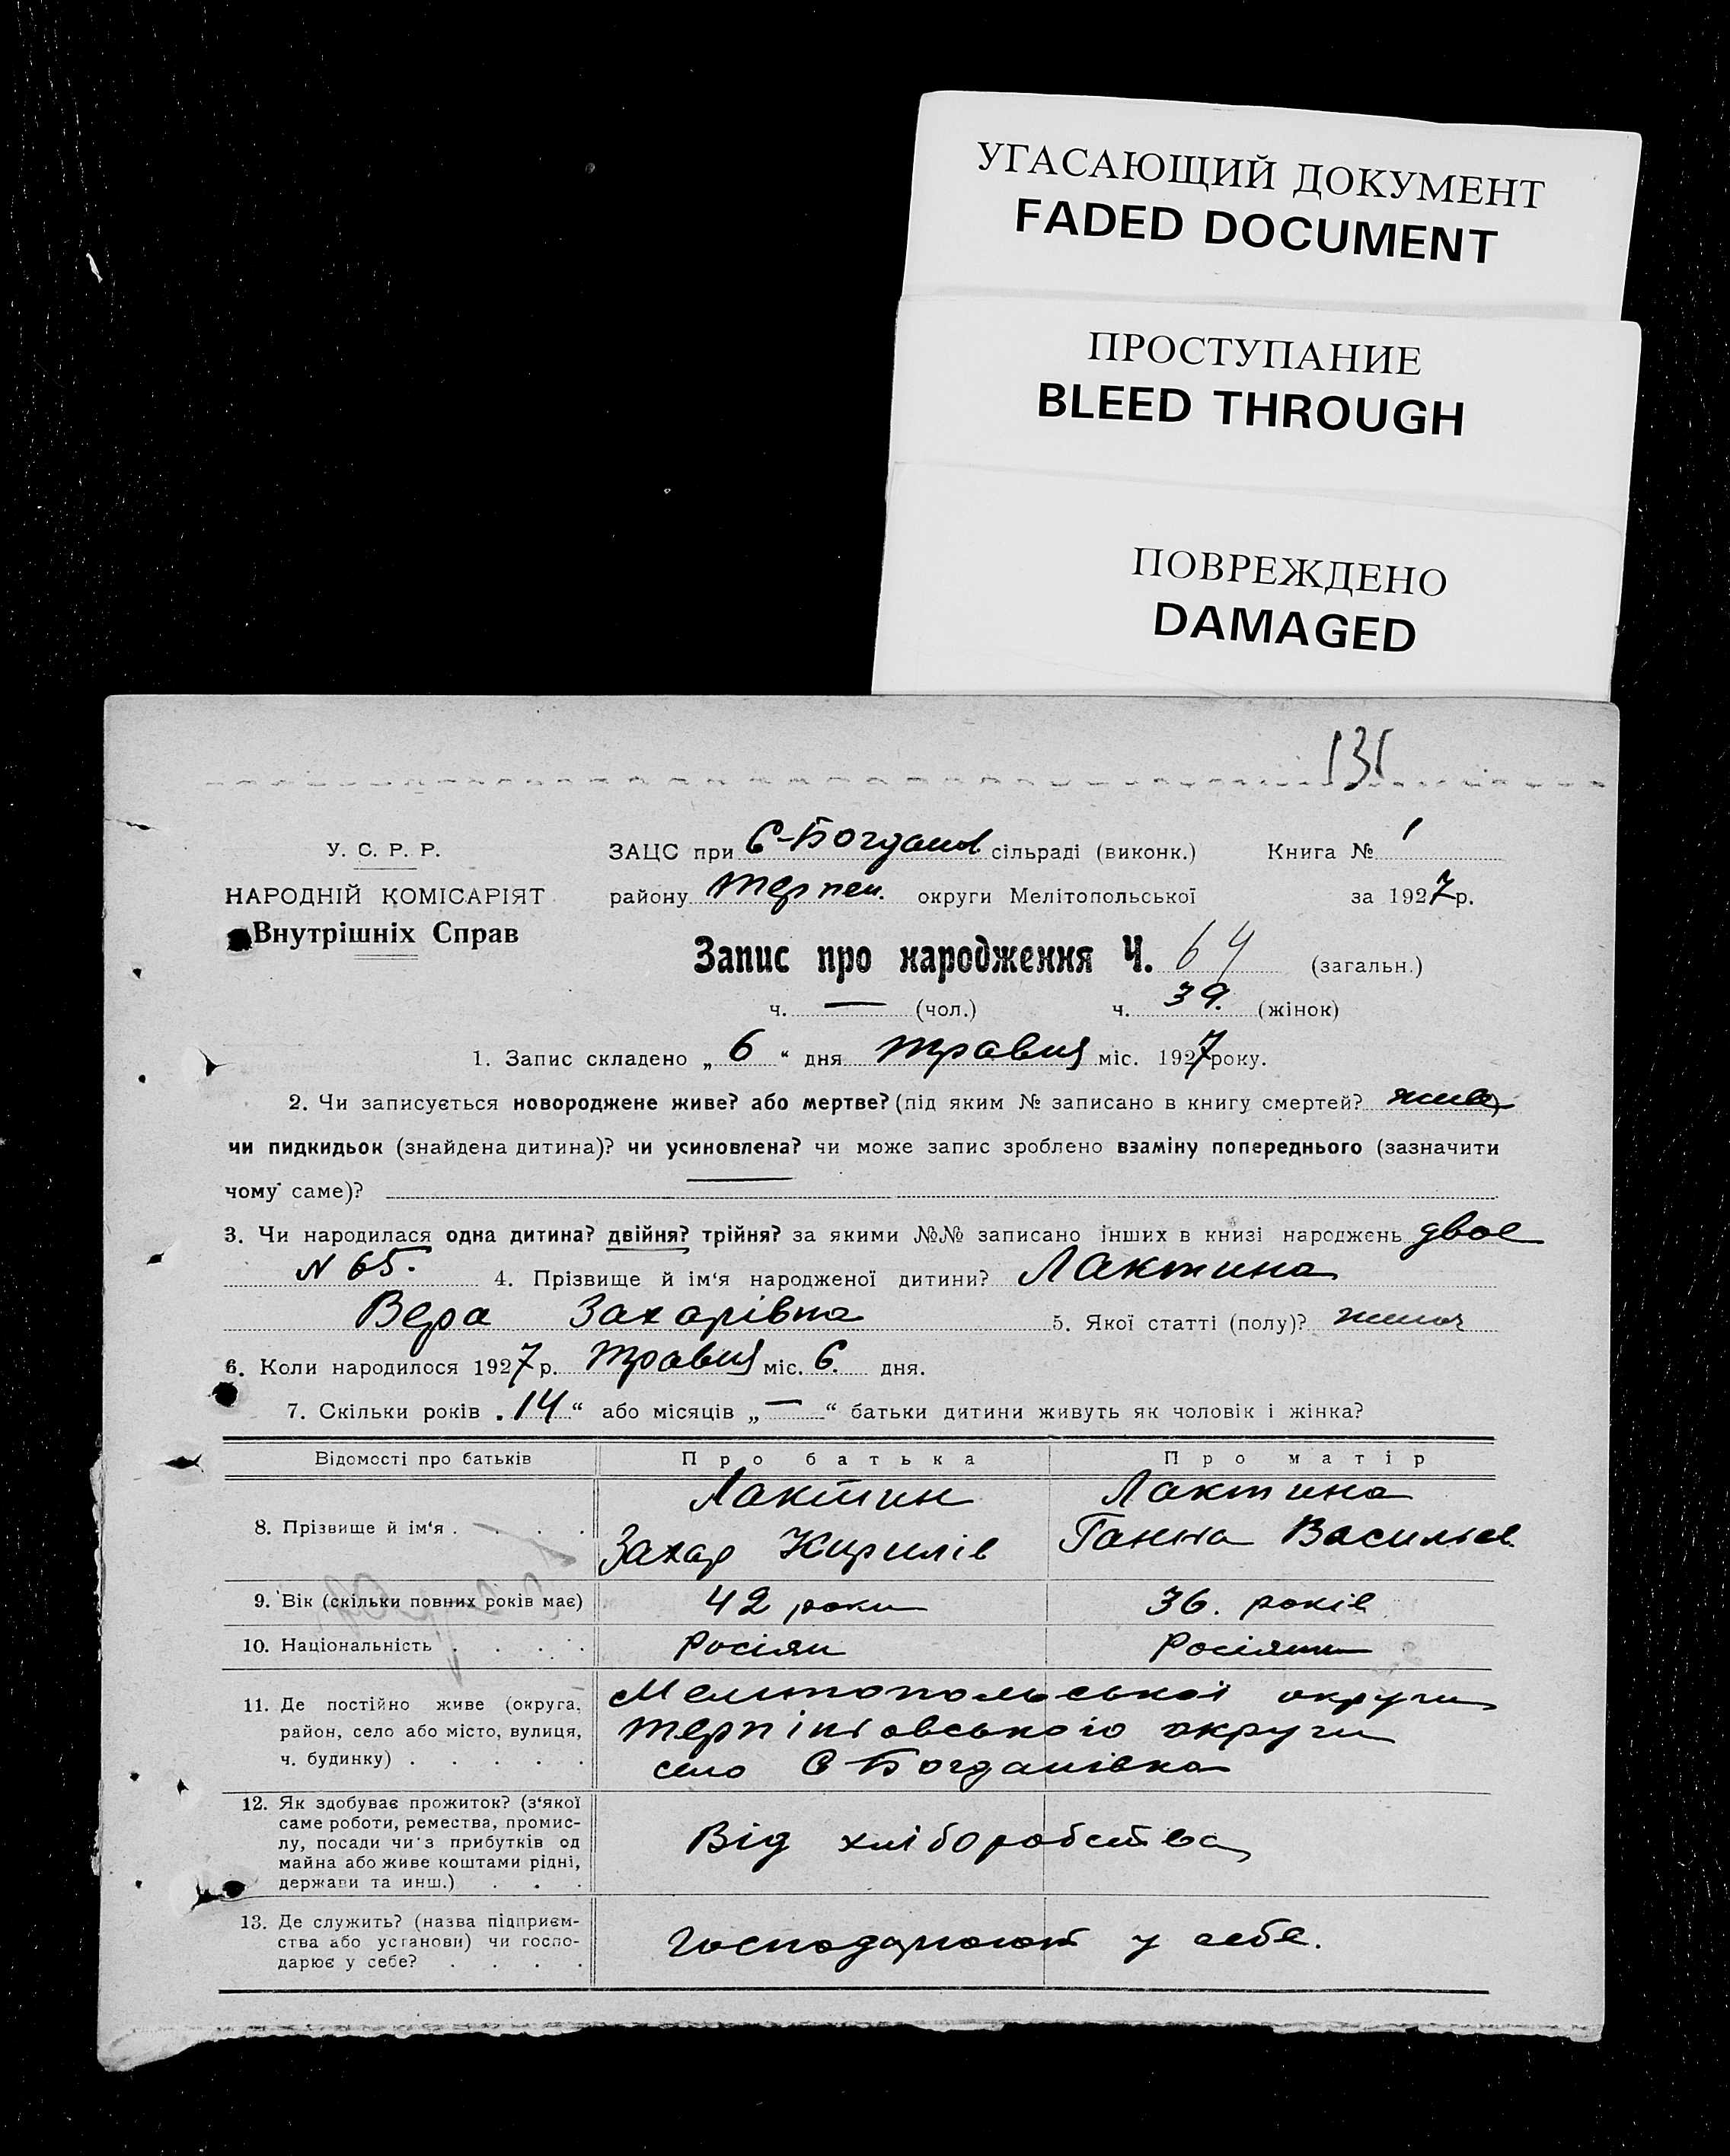 УГАСАЮЩИЙ ДОКУМЕНТ
FADED DOCUMENT
ПРОСТУПАНИЕ
BLEED THROUGH
ПОВРЕЖДЕНО
DAMAGED
131
У. С. Р. Р.
НАРОДНІЙ КОМІСАРІЯТ
Внутрішніх Справ
ЗАЦС при С-Богданов сільраді (виконк.) Книга № 1
району Терпен. округи Мелітопольської за 1927 р.
Запис про народження Ч. 64 (загальн.)
ч. — (чол.) ч. 39. (жінок)
1. Запис складено „ 6 “ дня травня міс. 1927 року.
2. Чи записується новороджене живе? або мертве? (під яким № записано в книгу смертей? живе
чи пидкидьок (знайдена дитина)? чи усиновлена? чи може запис зроблено взаміну попереднього (зазначити
чому саме)? —
3. Чи народилася одна дитина? двійня? трійня? за якими №№ записано інших в книзі народжень двое
N 65. 4. Прізвище й ім‘я народженої дитини? Лактина
Вера Захарівна 5. Якої статті (полу)? жиноч
6. Коли народилося 1927 р. травня міс. 6. дня.
7. Скільки років „ 14 “ або місяців „ — “ батьки дитини живуть як чоловік і жінка?
Відомості про батьків Про батька Про матір
8. Прізвище й ім‘я . . . .
Лактин Лактина
Захар Кирилів Ганна Васильев
9. Вік (скільки повних років має) 42 роки 36. років
10. Національність . . . . Росіян Росіянка
11. Де постійно живе (округа,
район, село або місто, вулиця,
ч. будинку) . . . . .
Мелитопольської округи
Терпіньовського округи
село С-Богданівка
12. Як здобуває прожиток? (з‘якої
саме роботи, ремества, промис-
лу, посади чи‘з прибутків од
майна або живе коштами рідні,
держави та инш.) . . .
Від хліборобства
13. Де служить? (назва підприєм-
ства або установи) чи госпо-
дарює у себе? . . . .
Господарюют у себе.